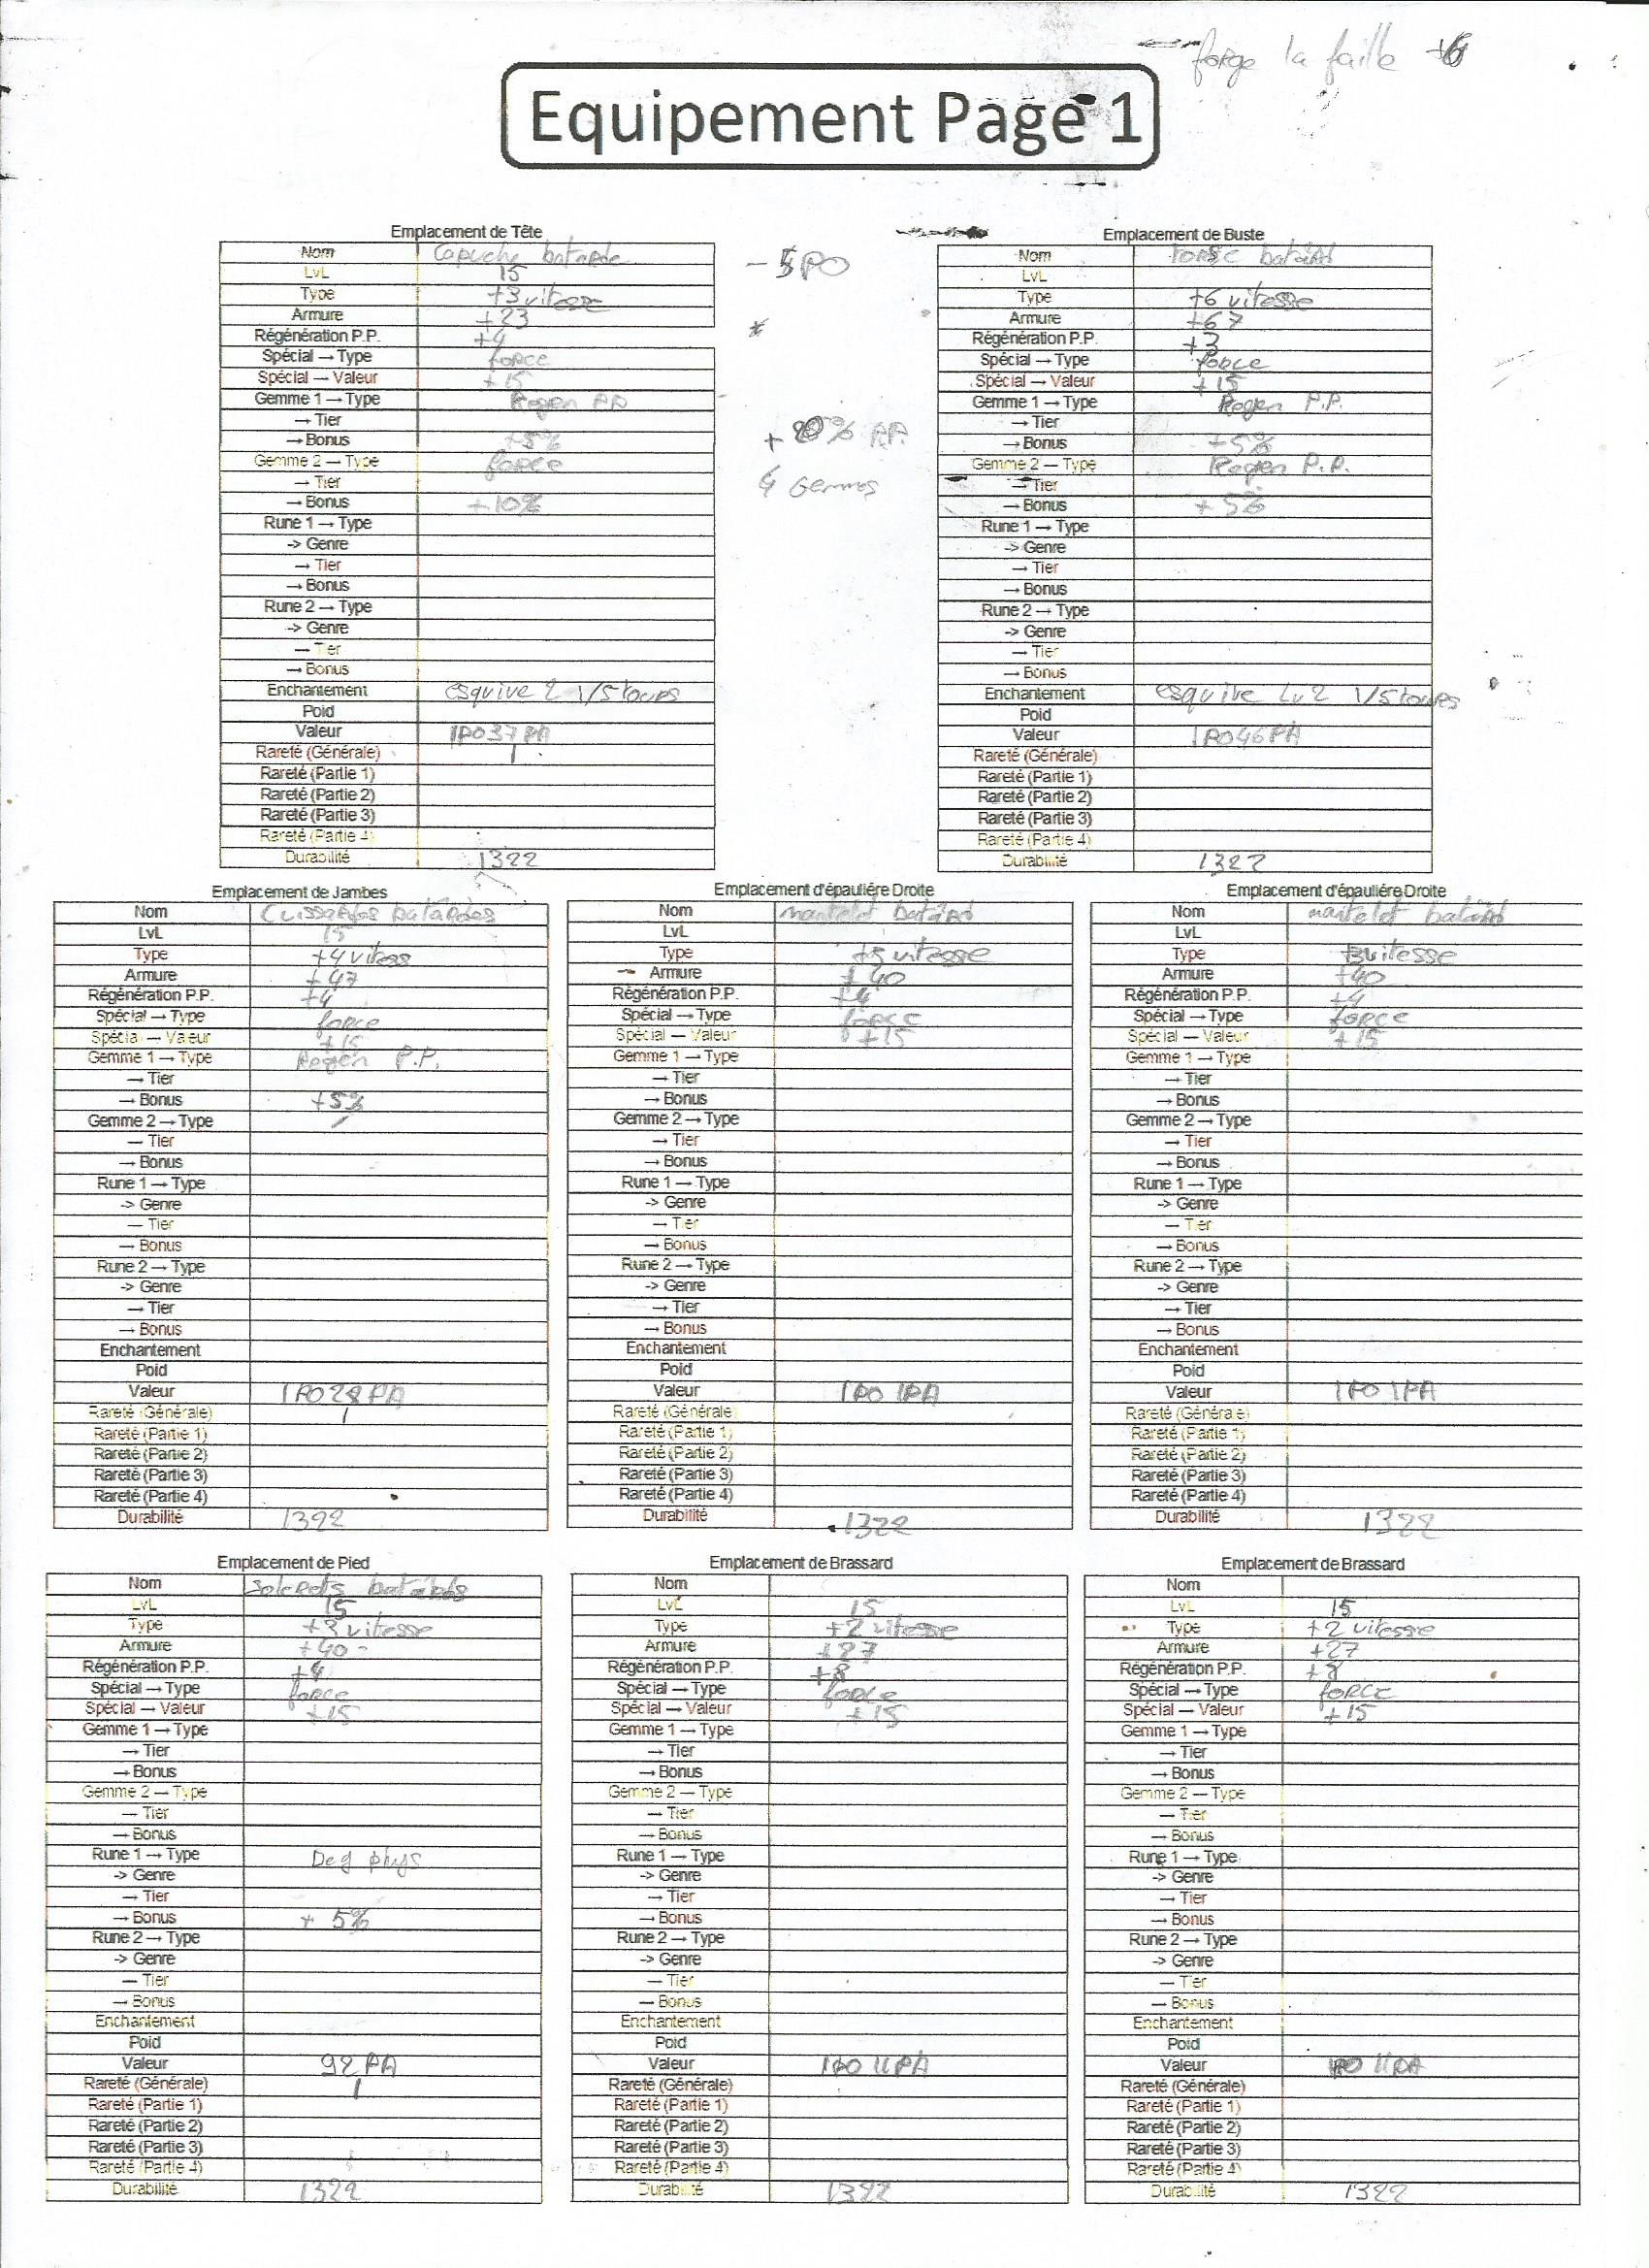 forge la faille +6
Equipement Page 1
Emplacement de Tête
Nom Capuche batarde
LvL 15
Type +3 vitesse
Armure +23
Régénération P.P. +4
Spécial → Type force
Spécial → Valeur +15
Gemme 1 → Type Regen PP
→ Tier
→ Bonus +5%
Gemme 2 → Type force
→ Tier
→ Bonus +10%
Rune 1 → Type
-> Genre
→ Tier
→ Bonus
Rune 2 → Type
-> Genre
→ Tier
→ Bonus
Enchantement esquive 2 1/5 tours
Poid
Valeur 1PO37PA
Rareté (Générale) 1
Rareté (Partie 1)
Rareté (Partie 2)
Rareté (Partie 3)
Rareté (Partie 4)
Durabilité 1322
- 5PO
P.P.
4 Gemmes
Emplacement de Buste
Nom torse batârd
LvL
Type +6 vitesse
Armure +67
Régénération P.P. +3
Spécial → Type force
Spécial → Valeur +15
Gemme 1 → Type Regen P.P.
→ Tier
→ Bonus +5%
Gemme 2 → Type Regen P.P.
→ Tier
→ Bonus +5%
Rune 1 → Type
-> Genre
→ Tier
→ Bonus
Rune 2 → Type
-> Genre
→ Tier
→ Bonus
Enchantement esquive Lv2 1/5 tours
Poid
Valeur 1PO46PA
Rareté (Générale)
Rareté (Partie 1)
Rareté (Partie 2)
Rareté (Partie 3)
Rareté (Partie 4)
Durabilité 1322
Emplacement de Jambes
Nom Cuissardes batardes
LvL 15
Type +4 vitess
Armure +47
Régénération P.P. +4
Spécial → Type force
Spécial → Valeur +15
Gemme 1 → Type Regen P.P.
→ Tier
→ Bonus +5%
Gemme 2 → Type
→ Tier
→ Bonus
Rune 1 → Type
-> Genre
→ Tier
→ Bonus
Rune 2 → Type
-> Genre
→ Tier
→ Bonus
Enchantement
Poid
Valeur 1PO28PA
Rareté (Générale) 1
Rareté (Partie 1)
Rareté (Partie 2)
Rareté (Partie 3)
Rareté (Partie 4)
Durabilité 1322
Emplacement d'épaulière Droite
Nom mantelet batârd
LvL
Type +5 vitesse
Armure +40
Régénération P.P. +4
Spécial → Type force
Spécial → Valeur +15
Gemme 1 → Type
→ Tier
→ Bonus
Gemme 2 → Type
→ Tier
→ Bonus
Rune 1 → Type
-> Genre
→ Tier
→ Bonus
Rune 2 → Type
-> Genre
→ Tier
→ Bonus
Enchantement
Poid
Valeur 1PO 1PA
Rareté (Générale)
Rareté (Partie 1)
Rareté (Partie 2)
Rareté (Partie 3)
Rareté (Partie 4)
Durabilité 1322
Emplacement d'épaulière Droite
Nom mantelet batârd
LvL
Type +3 vitesse
Armure +40
Régénération P.P. +4
Spécial → Type force
Spécial → Valeur +15
Gemme 1 → Type
→ Tier
→ Bonus
Gemme 2 → Type
→ Tier
→ Bonus
Rune 1 → Type
-> Genre
→ Tier
→ Bonus
Rune 2 → Type
-> Genre
→ Tier
→ Bonus
Enchantement
Poid
Valeur 1PO 1PA
Rareté (Générale)
Rareté (Partie 1)
Rareté (Partie 2)
Rareté (Partie 3)
Rareté (Partie 4)
Durabilité 1322
Emplacement de Pied
Nom Solerets batârds
LvL 15
Type +3 vitesse
Armure +40
Régénération P.P. +4
Spécial → Type force
Spécial → Valeur +15
Gemme 1 → Type
→ Tier
→ Bonus
Gemme 2 → Type
→ Tier
→ Bonus
Rune 1 → Type Deg phys
-> Genre
→ Tier
→ Bonus + 5%
Rune 2 → Type
-> Genre
→ Tier
→ Bonus
Enchantement
Poid
Valeur 92 PA
Rareté (Générale) 1
Rareté (Partie 1)
Rareté (Partie 2)
Rareté (Partie 3)
Rareté (Partie 4)
Durabilité 1322
Emplacement de Brassard
Nom
LvL 15
Type +2 vitesse
Armure +27
Régénération P.P. +8
Spécial → Type force
Spécial → Valeur +15
Gemme 1 → Type
→ Tier
→ Bonus
Gemme 2 → Type
→ Tier
→ Bonus
Rune 1 → Type
-> Genre
→ Tier
→ Bonus
Rune 2 → Type
-> Genre
→ Tier
→ Bonus
Enchantement
Poid
Valeur 1PO 11PA
Rareté (Générale)
Rareté (Partie 1)
Rareté (Partie 2)
Rareté (Partie 3)
Rareté (Partie 4)
Durabilité 1322
Emplacement de Brassard
Nom
LvL 15
Type +2 vitesse
Armure +27
Régénération P.P. +8
Spécial → Type force
Spécial → Valeur +15
Gemme 1 → Type
→ Tier
→ Bonus
Gemme 2 → Type
→ Tier
→ Bonus
Rune 1 → Type
-> Genre
→ Tier
→ Bonus
Rune 2 → Type
-> Genre
→ Tier
→ Bonus
Enchantement
Poid
Valeur 1PO 11PA
Rareté (Générale)
Rareté (Partie 1)
Rareté (Partie 2)
Rareté (Partie 3)
Rareté (Partie 4)
Durabilité 1322